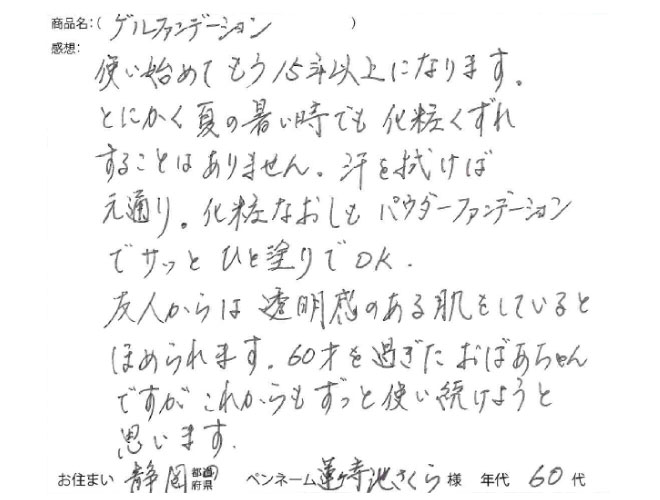 商品名:( ゲルファンデーション )
感想:
使い始めてもう15年以上になります。
とにかく夏の暑い時でも化粧くずれ
することはありません。汗を拭けば
元通り。化粧なおしもパウダーファンデーション
でサッとひと塗りでOK.
友人からは透明感のある肌をしていると
ほめられます。60才を過ぎたおばあちゃん
ですがこれからもずっと使い続けようと
思います.
お住まい 静岡 都道府県 ペンネーム 蓮寺池さくら 様 年代 60 代